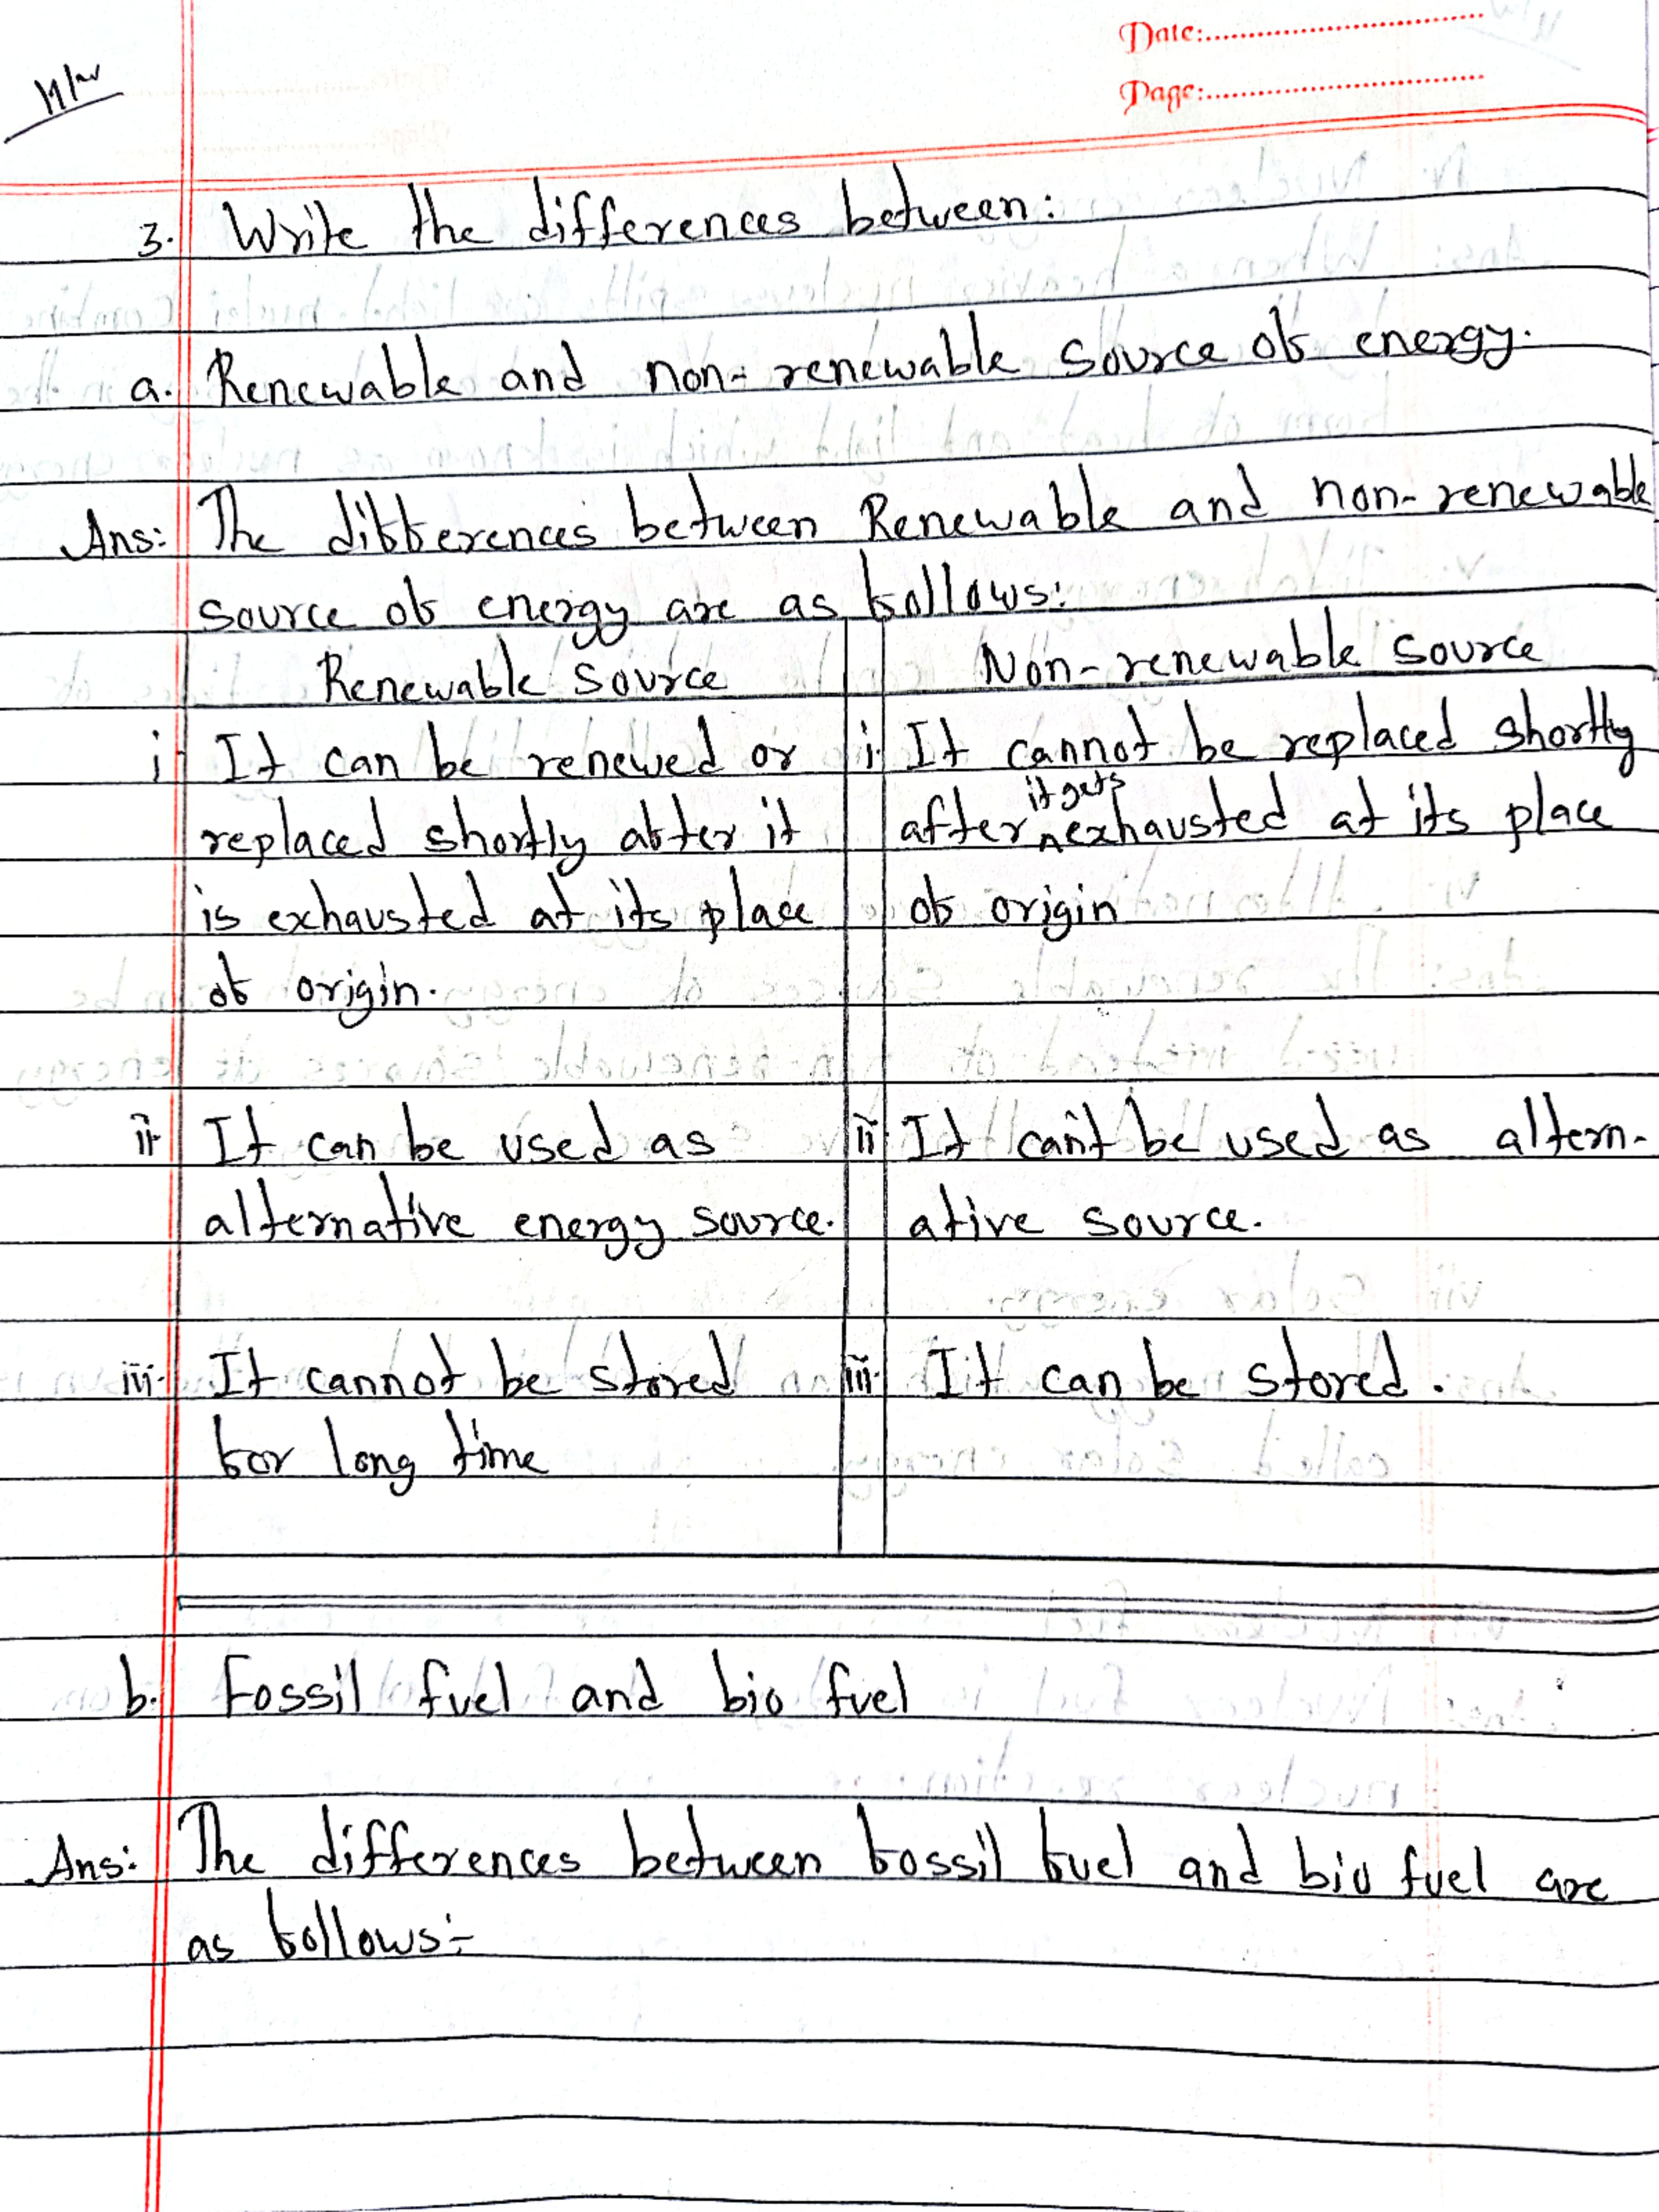 Date:
Page:
H/w
3. Write the differences between:
a. Renewable and non-renewable source of energy.
Ans: The differences between Renewable and non-renewable
source of energy are as follows:
Renewable Source
Non-renewable source
i. It can be renewed or
replaced shortly after it
is exhausted at its place
of origin.
i. It cannot be replaced shortly
after it gets exhausted at its place
of origin
ii. It can be used as
alternative energy source.
ii. It can't be used as altern-
ative source.
iii. It cannot be stored
for long time
iii. It can be stored.
b. Fossil fuel and bio fuel
Ans: The differences between fossil fuel and bio fuel are
as follows:-